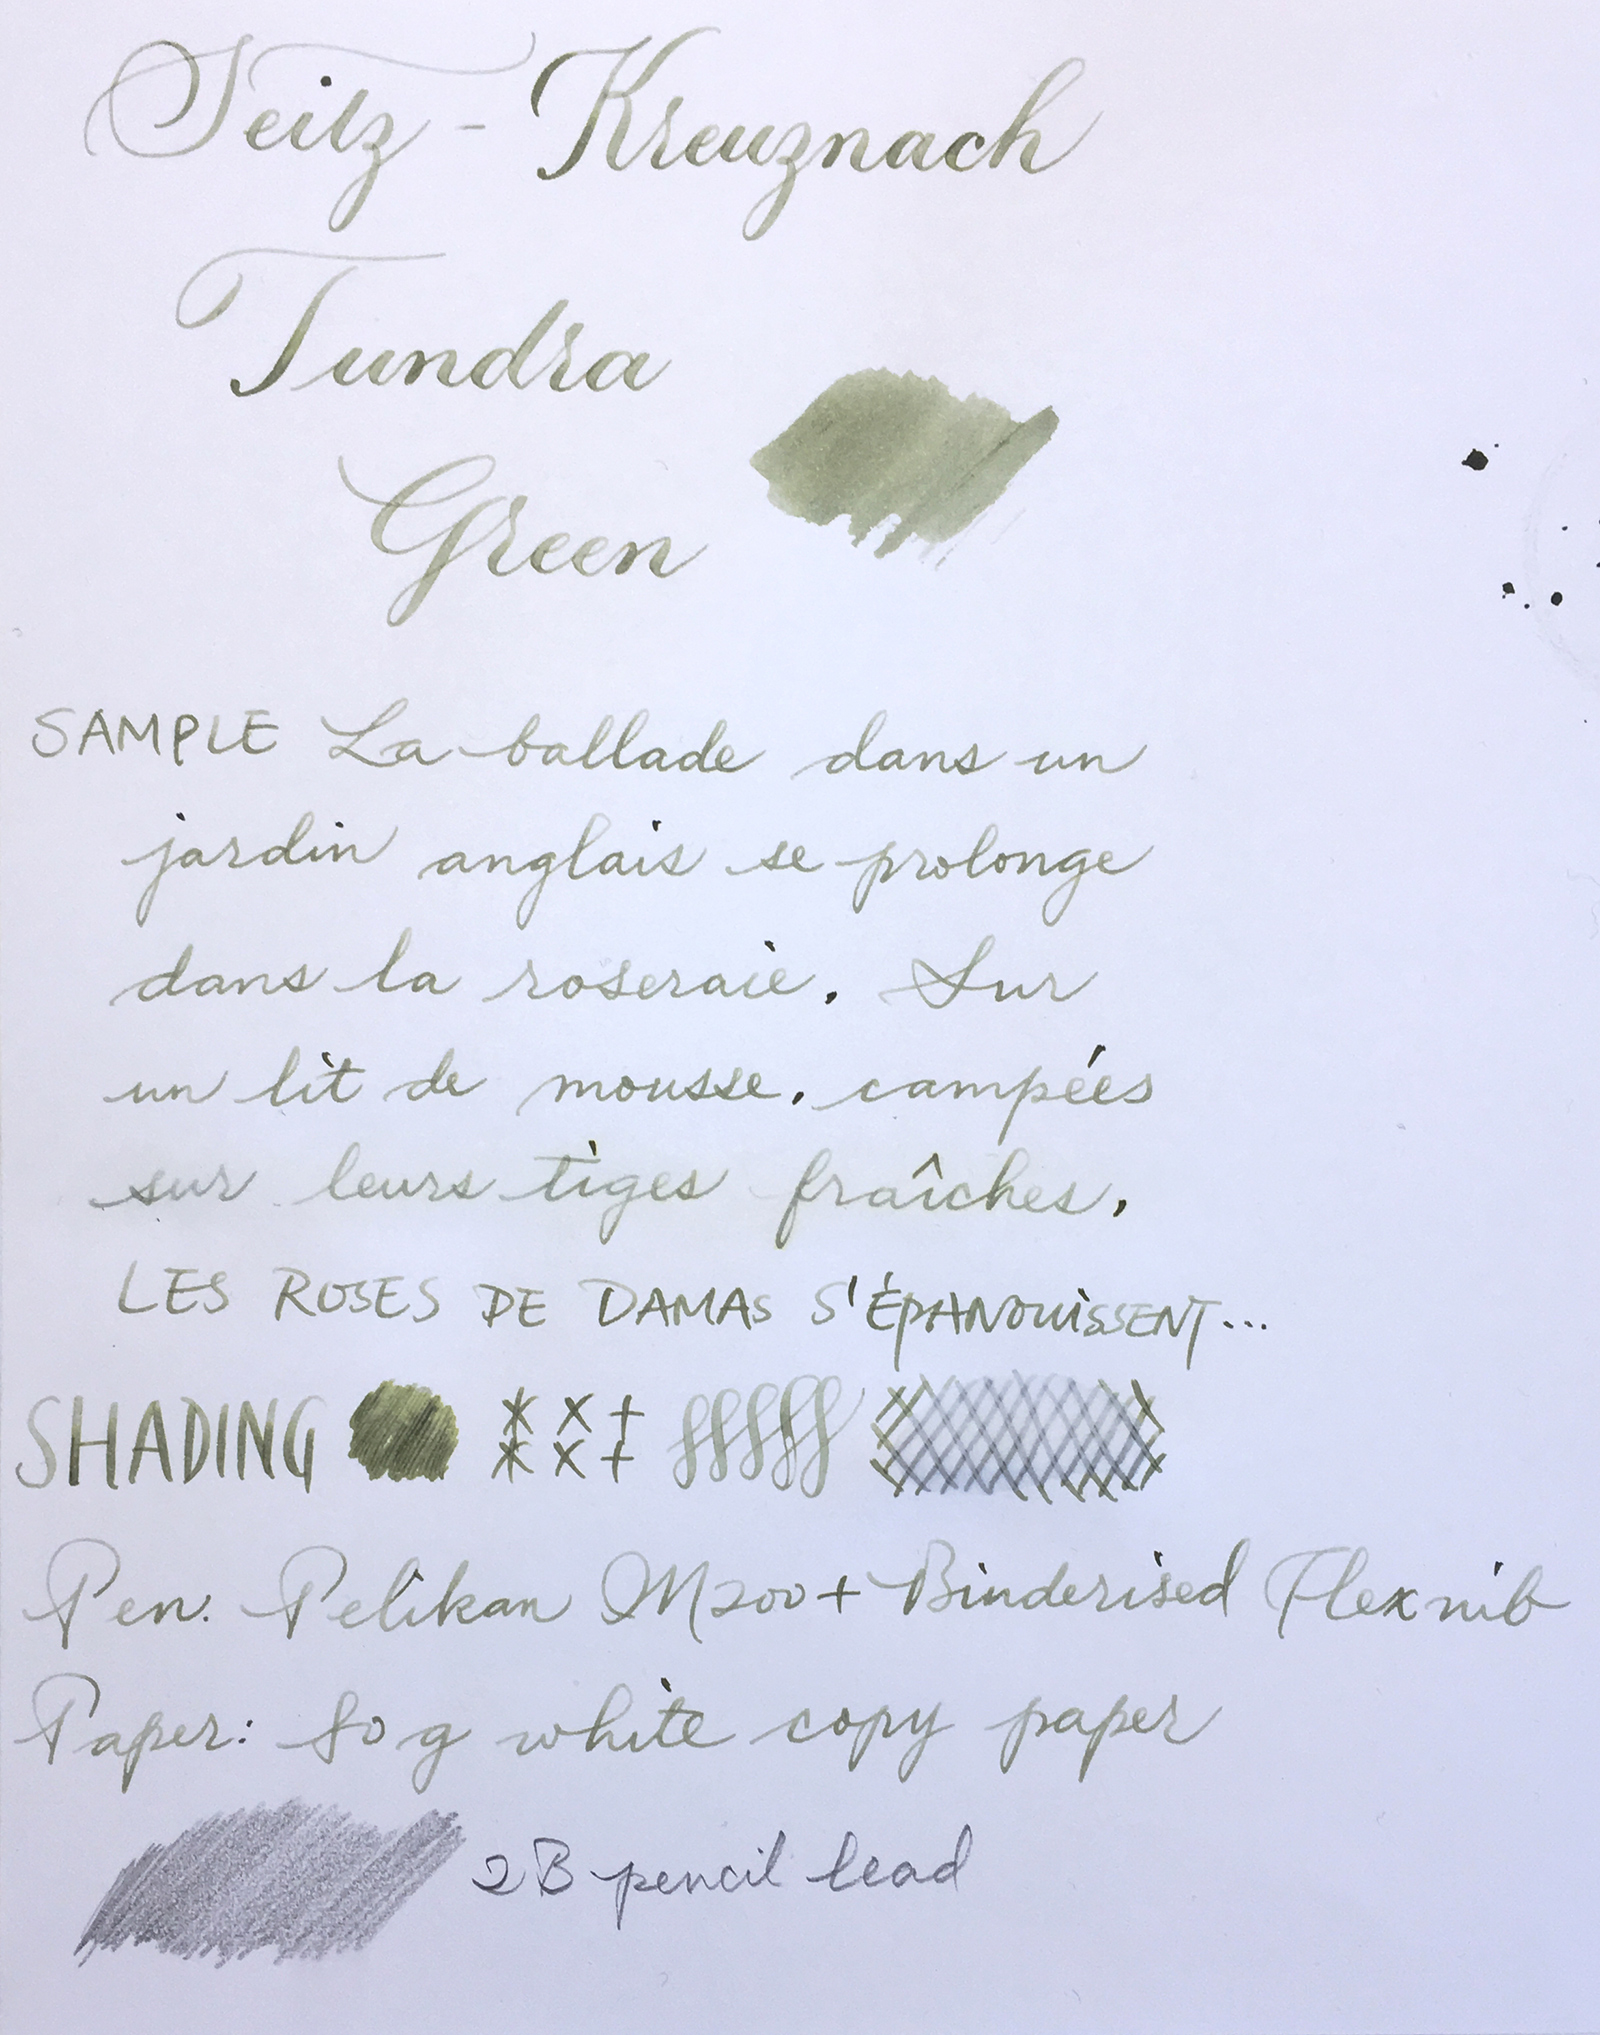 Seitz-Kreuznach
Tundra
Green
SAMPLE La ballade dans un
jardin anglais se prolonge
dans la roseraie. Sur
un lit de mousse, campées
sur leurs tiges fraîches,
LES ROSES DE DAMAS S'ÉPANOUISSENT...
SHADING
Pen: Pelikan M200 + Binderised Flex nib
Paper: 80 g white copy paper
2B pencil lead